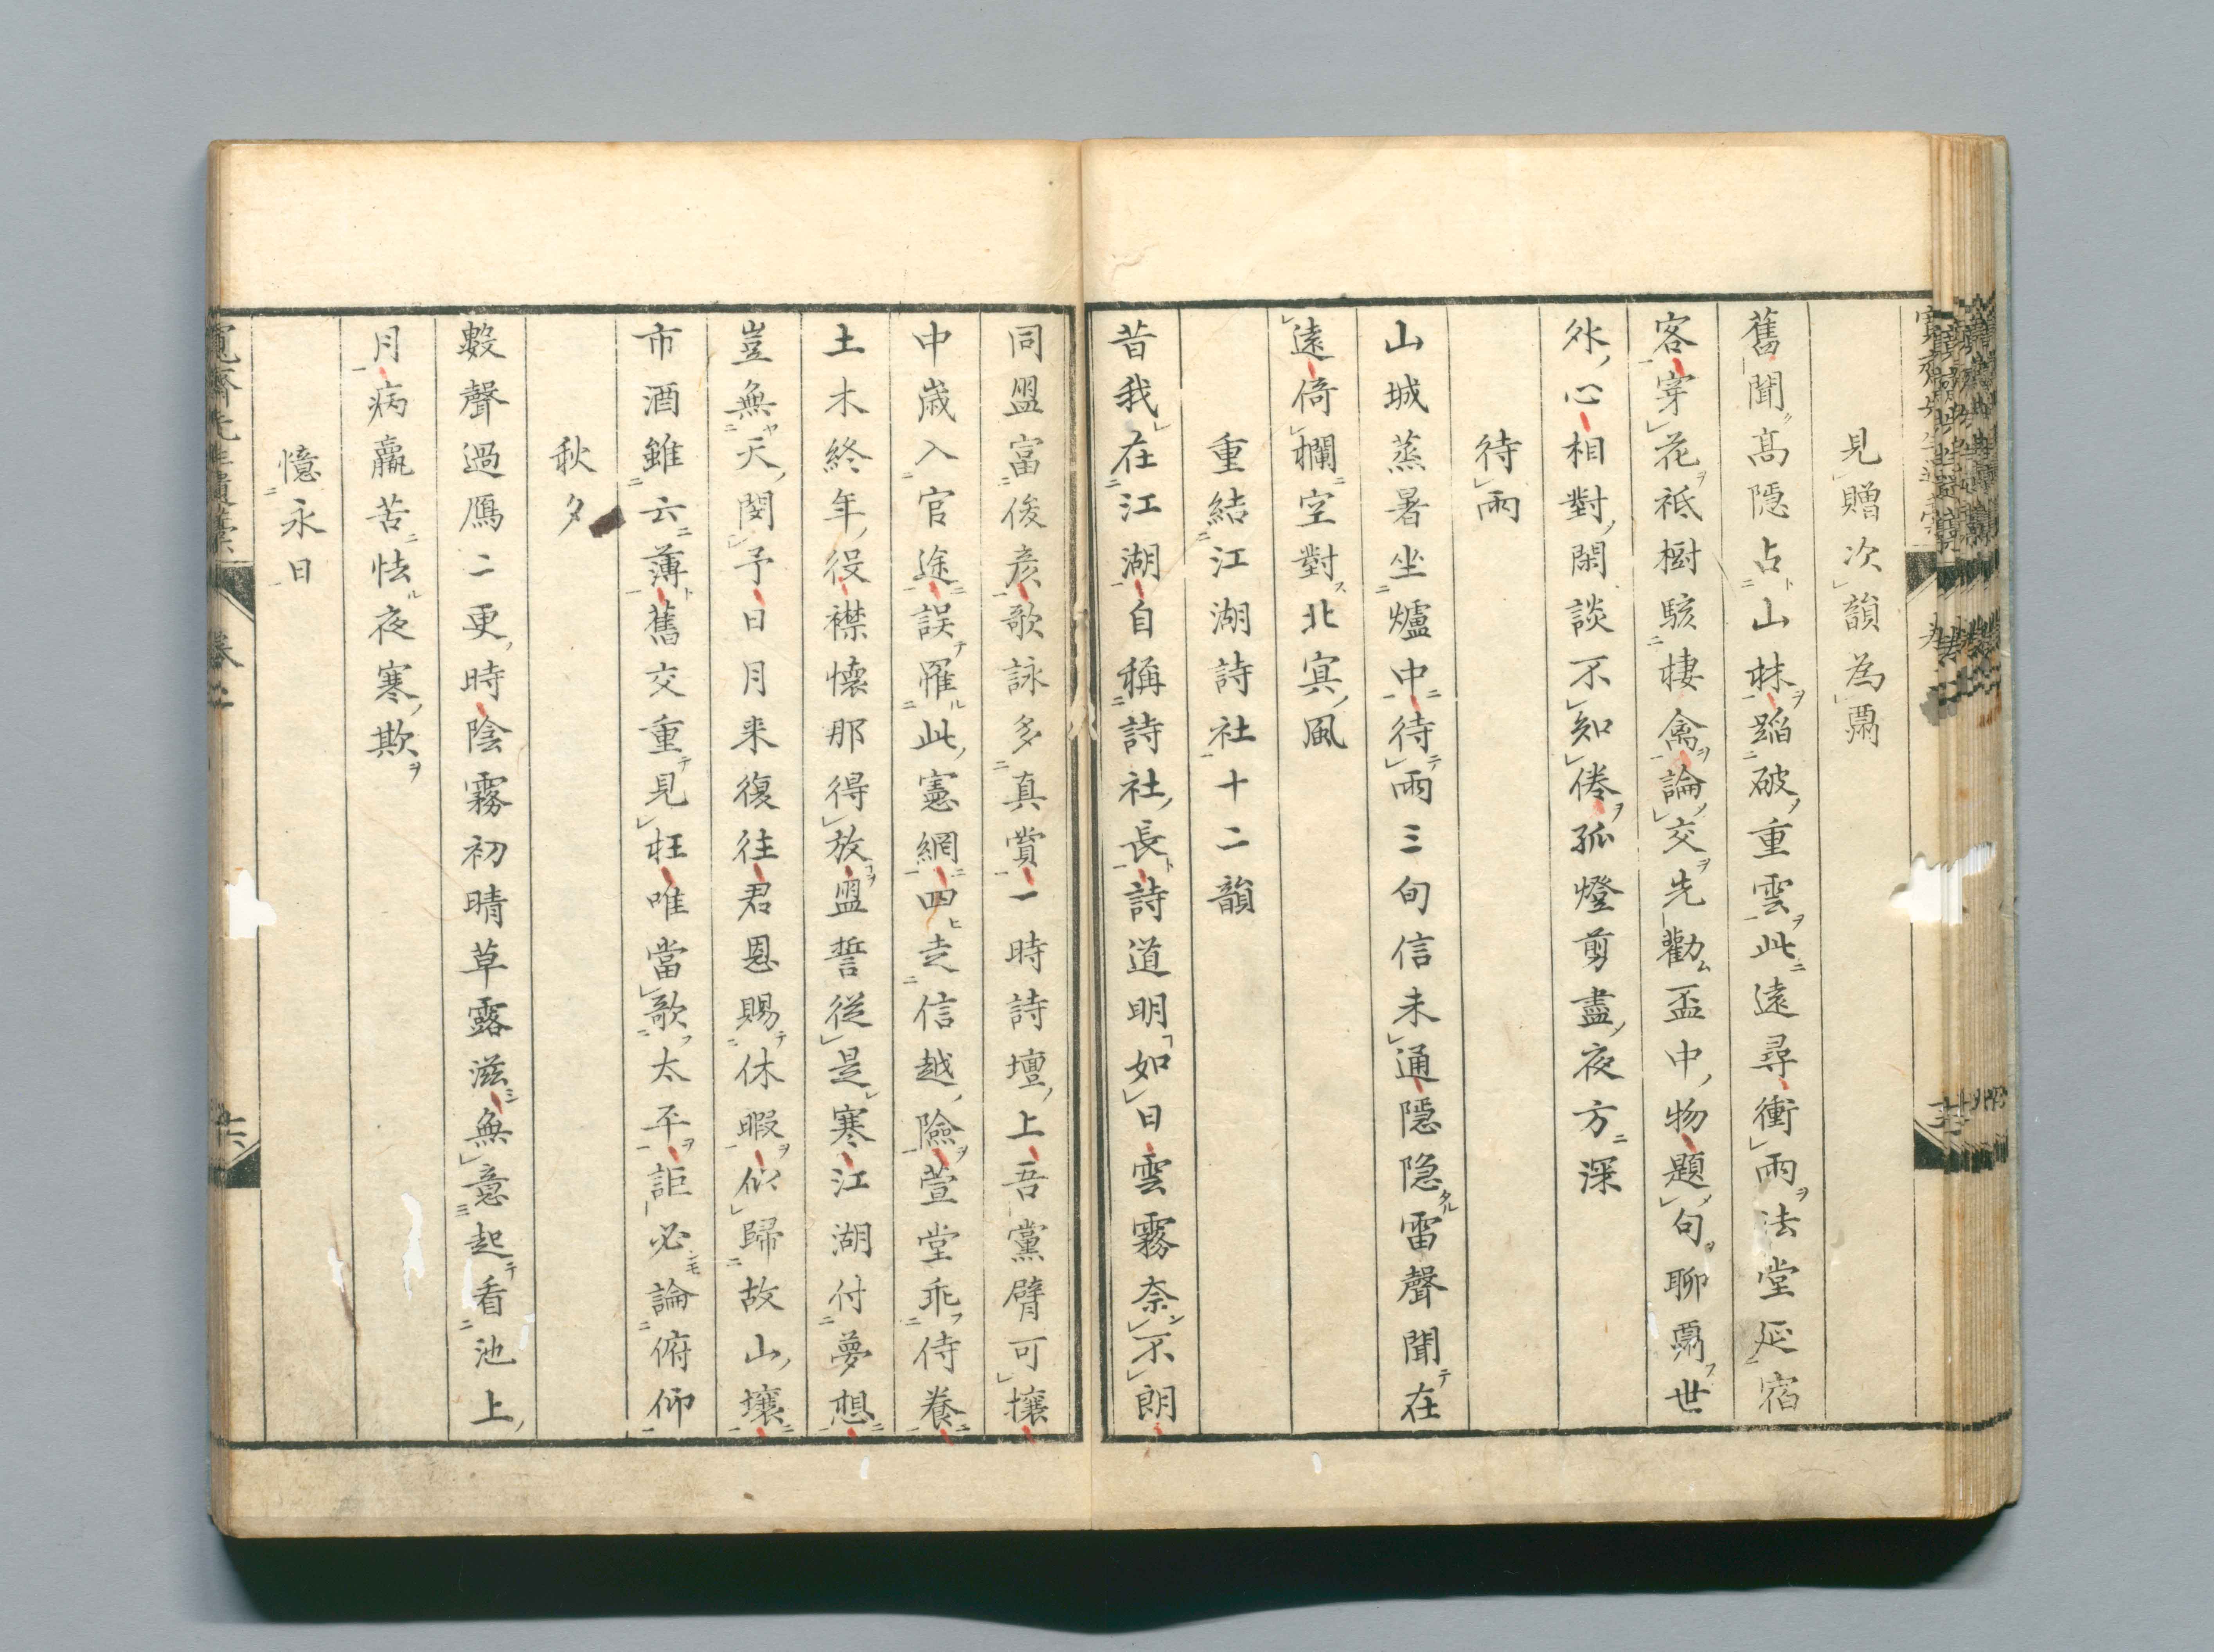 見贈次韻為酬
舊聞高隱占山林蹈破重雲此遠尋衝雨法堂延宿
客穿花祇樹駭棲禽論交先勸盃中物題句聊酬世
外心相對閑談不知倦孤燈剪盡夜方深
待雨
山城蒸暑坐爐中待雨三旬信未通隱隱雷聲聞在
遠倚欄空對北冥風
重結江湖詩社十二韻
昔我在江湖自稱詩社長詩道明如日雲霧奈不朗
同盟富俊彥歌詠多真賞一時詩壇上吾黨臂可攘
中歲入官途誤罹此憲網四走信越險萱堂乖侍養
土木終年役襟懷那得放盟誓從是寒江湖付夢想
豈無天閔予日月来復往君恩賜休暇似歸故山壤
市酒雖云薄舊交重見枉唯當歌太平詎必論俯仰
秋夕
數聲過鴈二更時陰霧初晴草露滋無意起看池上
月病羸苦怯夜寒欺
憶永日
卷之